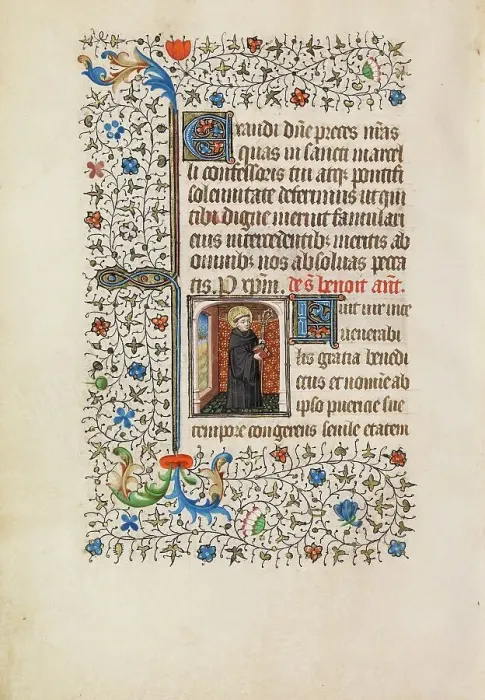 Exaudi dñe preces nr̃as
quas in sancti marcel
li confessoris tui atqꝫ pontifi
solennitate deferimus ut qui
tibi digne meruit famulari
eius intercedentibꝫ meritis ab
omnibꝫ nos absoluas pecca
tis. P xp̃m. de s̃ benoit ant̃.
Fuit vir vite
venerabi
lis gratia benedi
ctus et nomine ab
ipso puericie sue
tempore cor gerens senile etatem